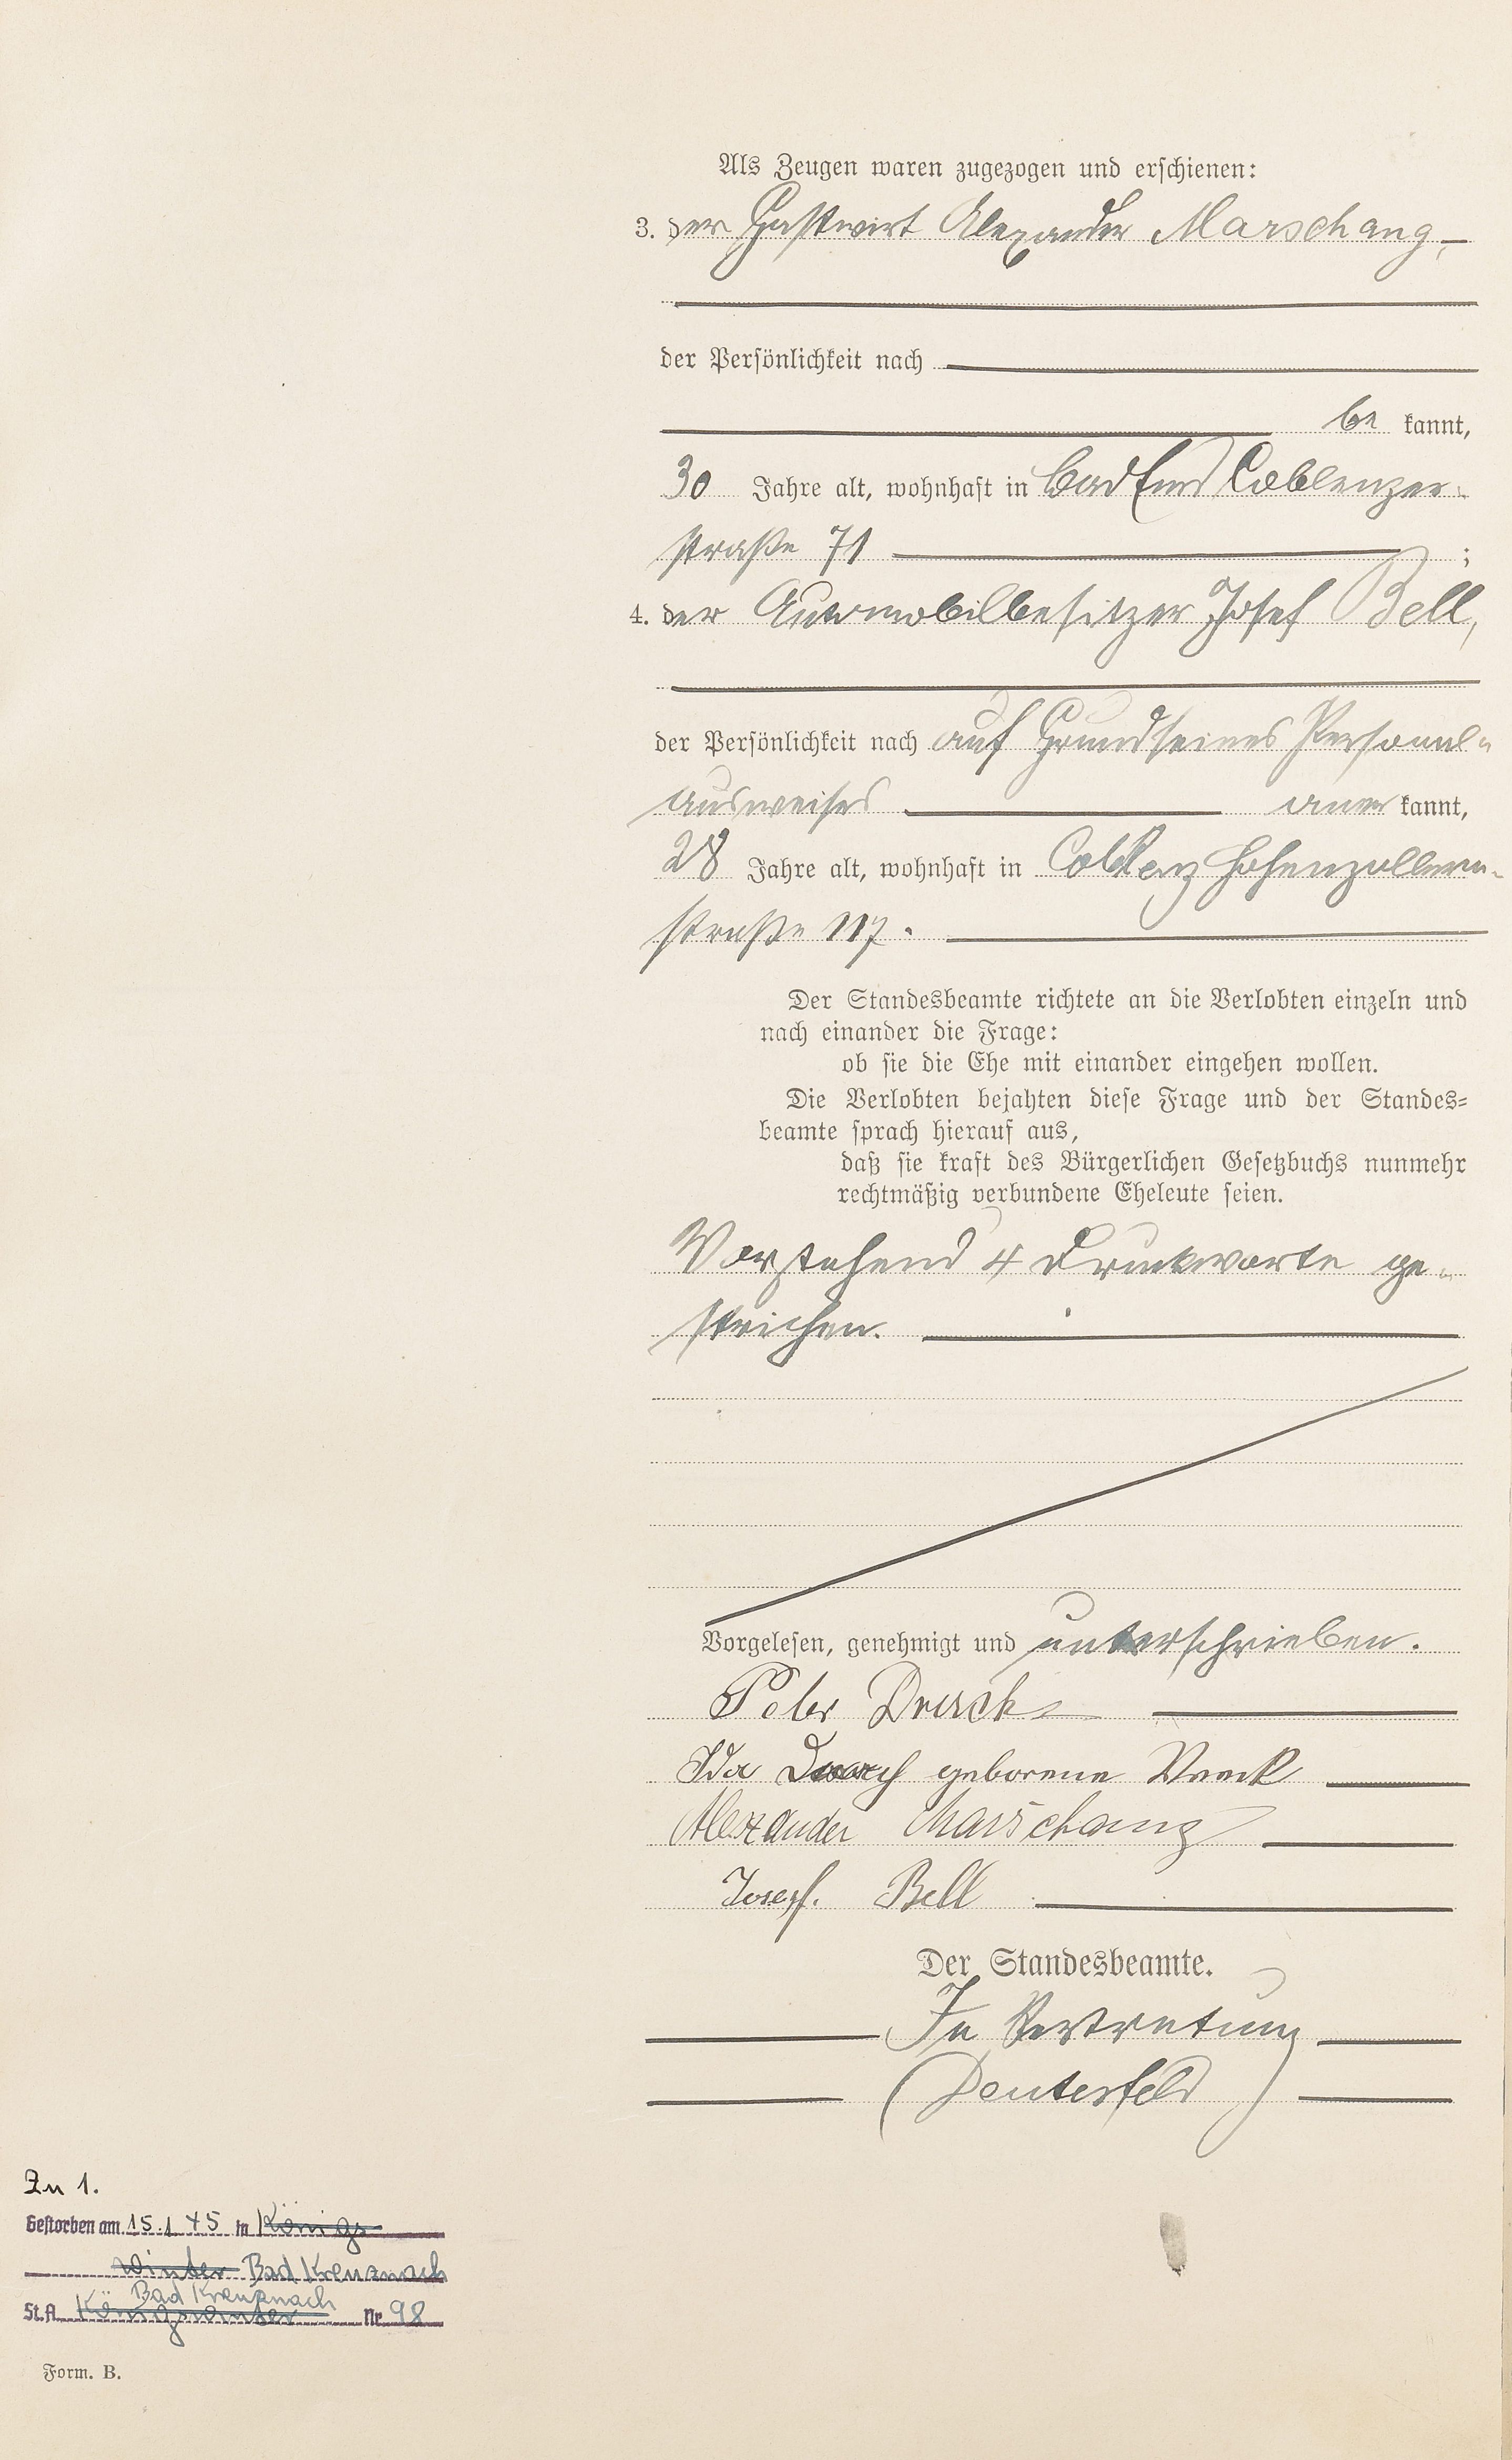 Als Zeugen waren zugezogen und erschienen:
3. der Gastwirt Alexander Marschang,
der Persönlichkeit nach
be kannt,
30 Jahre alt, wohnhaft in Bad Ems Coblenzer-
straße 71 ;
4. der Automobilbesitzer Josef Bell,
der Persönlichkeit nach auf Grund seines Personal-
ausweises aner kannt,
28 Jahre alt, wohnhaft in Coblenz Hohenzollern-
straße 117.
Der Standesbeamte richtete an die Verlobten einzeln und
nach einander die Frage:
ob sie die Ehe mit einander eingehen wollen.
Die Verlobten bejahten diese Frage und der Standes-
beamte sprach hierauf aus,
daß sie kraft des Bürgerlichen Gesetzbuchs nunmehr
rechtmäßig verbundene Eheleute seien.
Vorstehend 4 Druckworte ge-
strichen.
Vorgelesen, genehmigt und unterschrieben.
Peter
Ida geborene
Alexander Marschang
Josef. Bell
Der Standesbeamte.
In Vertretung
(Deuterfeld)
Zu 1.
Gestorben am 15.1.45 in Königs-
winter Bad Kreuznach
Bad Kreuznach
St.A. Königswinter Nr. 98
Form. B.